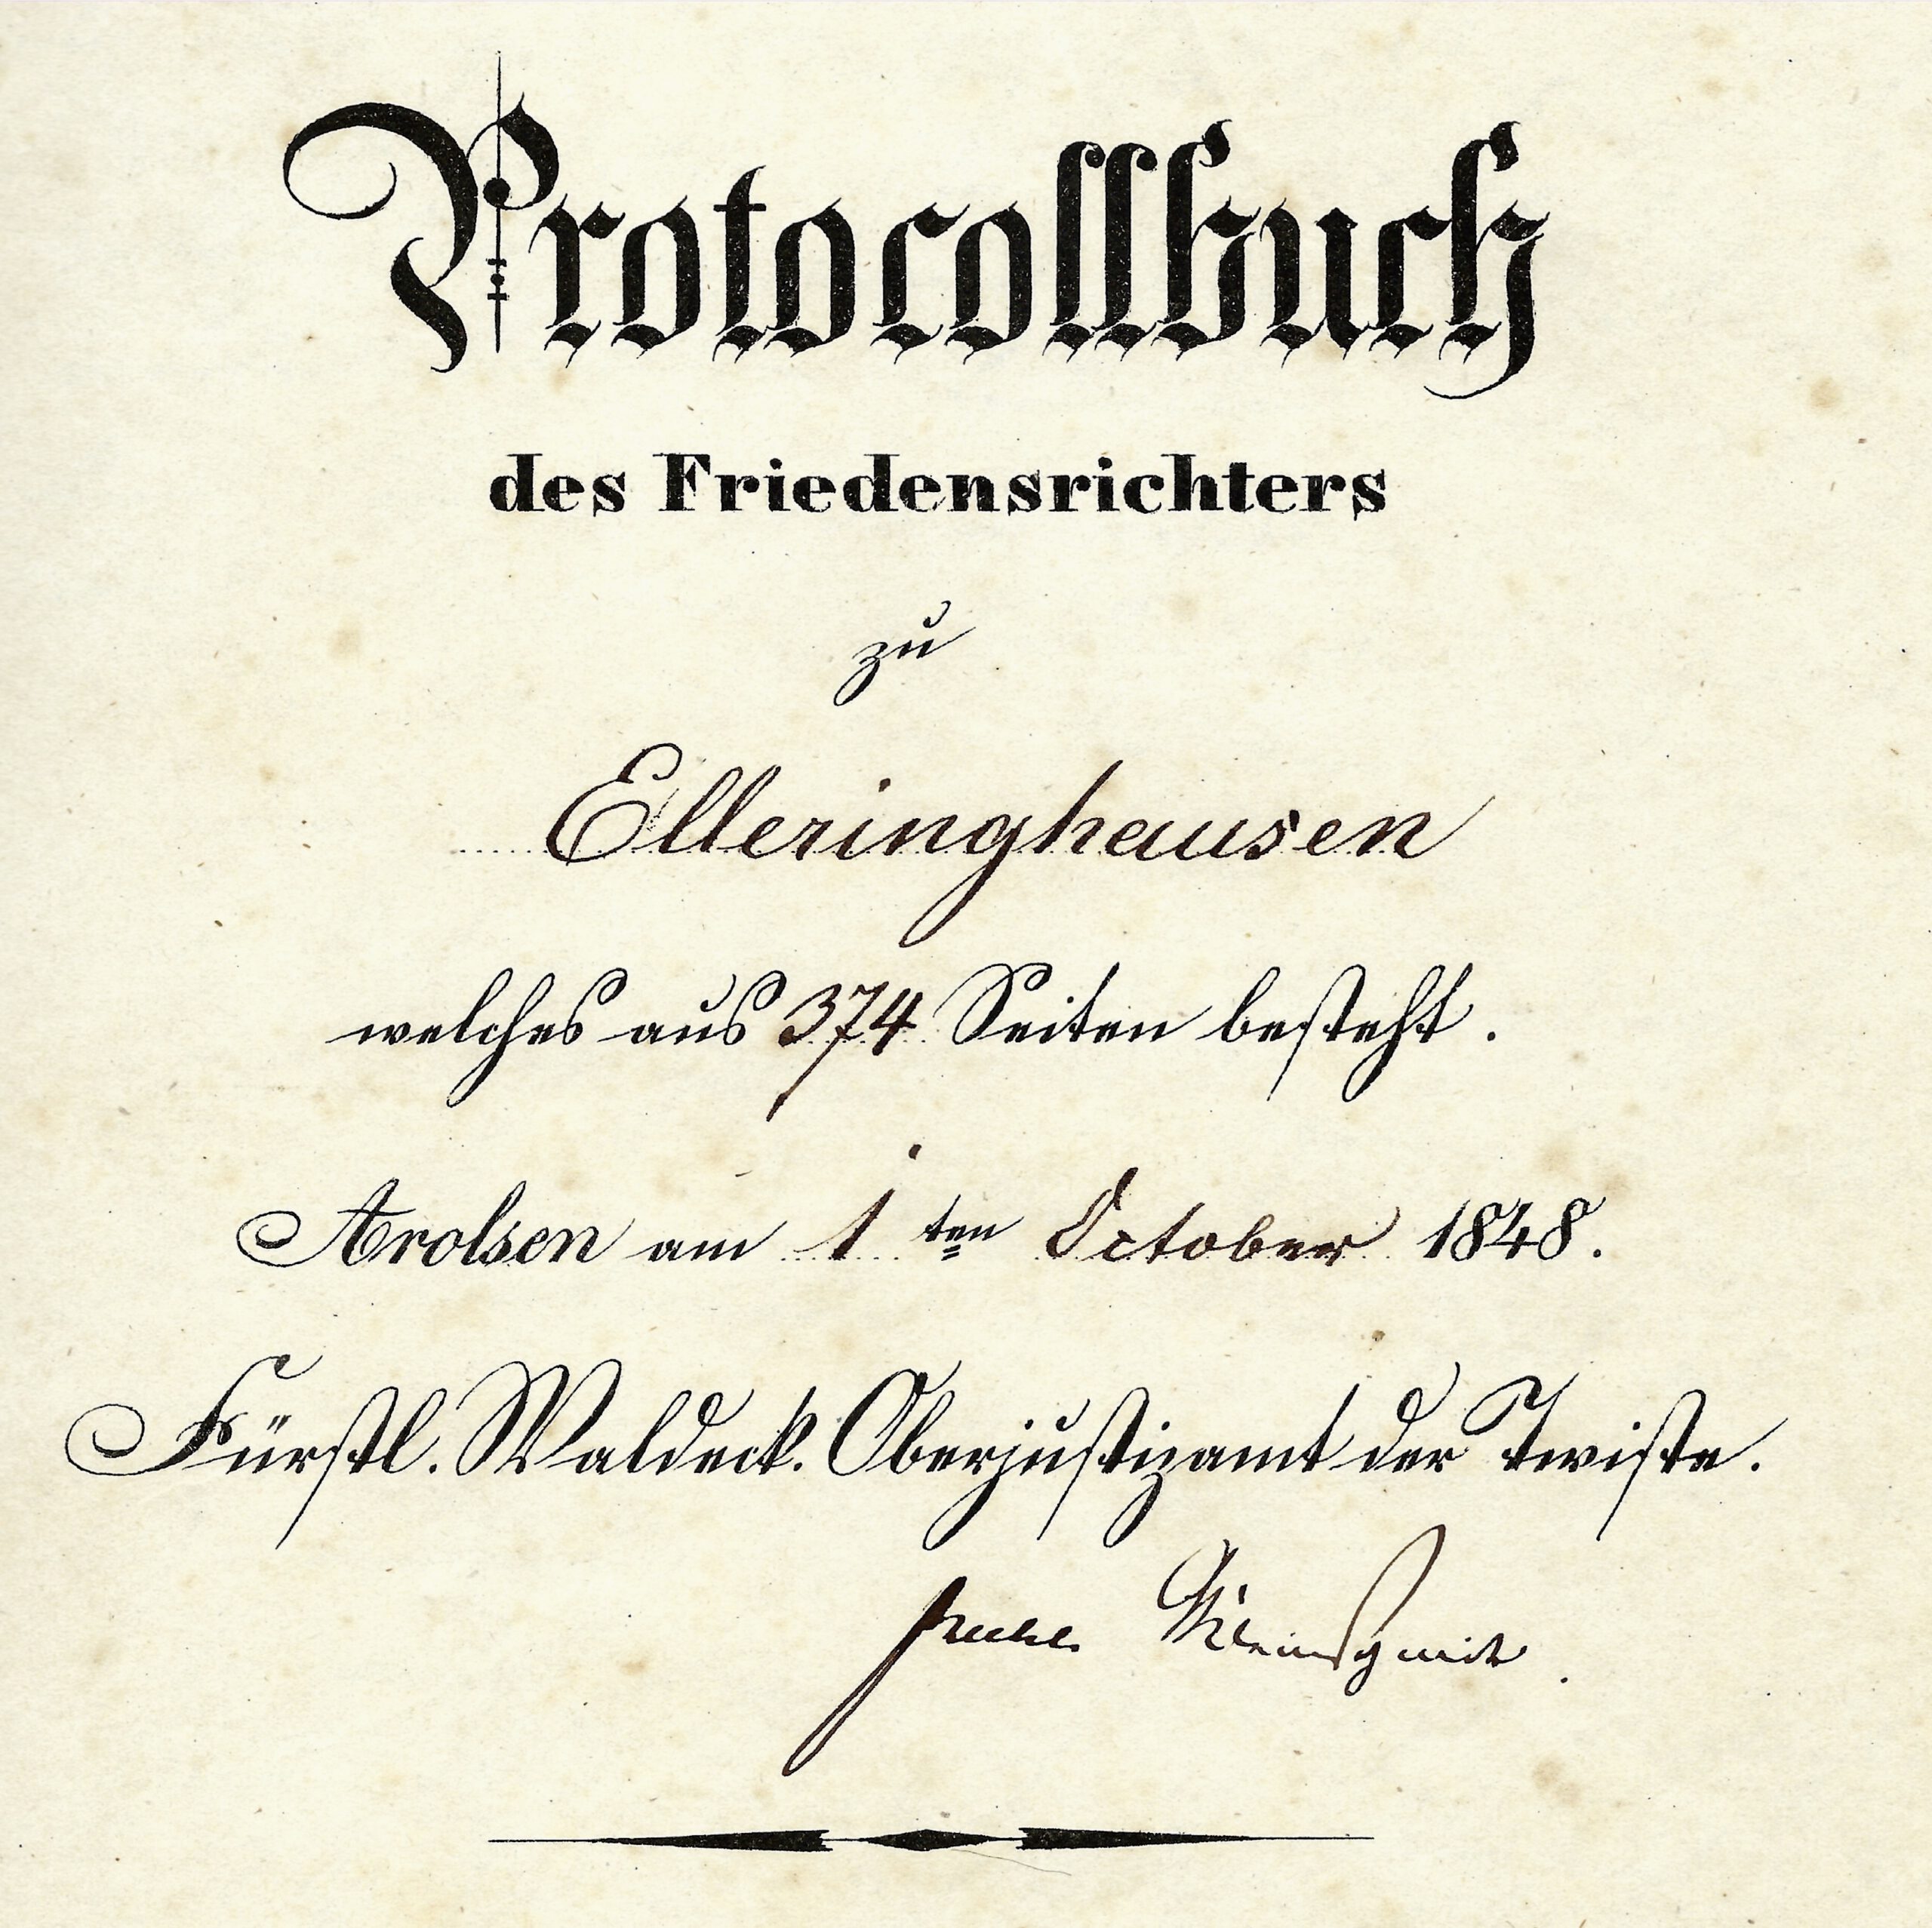 Protocollbuch
des Friedensrichters
zu
Elleringhausen
welches aus 374 Seiten besteht.
Arolsen am 1ten October 1848.
Fürstl. Waldeck. Oberjustizamt der Twiste.
Kleinschmit